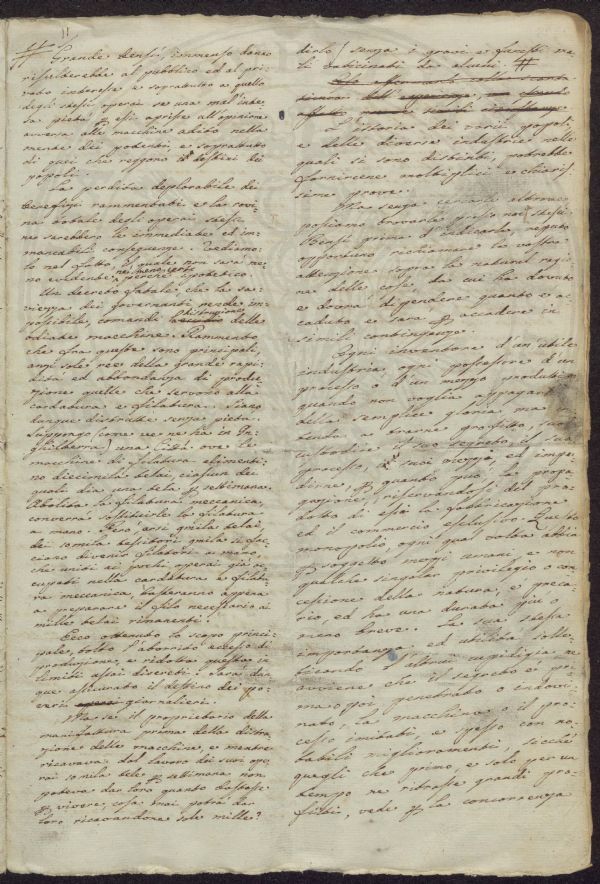 11
# Grande bensì, immenso danno
risulterebbe al pubblico ed al pri-
vato interesse e soprattutto a quello
degli stessi operai se una mal'inte-
sa pietà p essi aprisse all'opinione
avversa alle macchine adito nella
mente dei godenti, e soprattutto
di quei che reggono i destini dei
popoli.
La perdita deplorabile dei
benefizj rammentati e la rovi-
na totale degli operai stessi
ne sarebbero le immediate ed im-
mancabili conseguenze. Vediamo-
lo nel fatto, il quale non sarà me-
no evidente nè meno certo perchè ipotetico.
Un decreto fatale che la sa-
viezza dei Governanti rende im-
possibile, comandi la distruzione delle
odiate macchine. Rammento
che fra queste son principali,
anzi sole ree della grande rapi-
dità ed abbondanza di produ-
zione quelle che servono alla
cardatura e filatura. Siano
dunque distrutte senza pietà.
Suppongo (come ve ne ha in In-
ghilterra) una Città ove le
macchine di filatura alimenti-
no diecimila telai, ciascun dei
quali dia una tela p settimana.
Abolita la filatura meccanica,
converrà sostituirle la filatura
a mano. Però, orsi 9mila telai,
dei 10mila tessitori 9mila si fac-
ciano divenir filatori a mano,
che uniti ai pochi operai già oc-
cupati nella cardatura e filatu-
ra meccanica, basteranno appena
a preparare il filo necessario ai
mille telai rimanenti.
Ecco ottenuto lo scopo princi-
pale, tolto l'aborrito eccesso di
produzione, e ridotta questa in
limiti assai discreti. Sarà dun-
que assicurato il destino dei po-
veri giornalieri.
Ma se il proprietario della
manifattura prima della distru-
zione delle macchine, e mentre
ricavava dal lavoro dei suoi ope-
rai 10mila tele p settimana non
poteva dar loro quanto bastasse
p vivere, cosa mai potrà dar
loro ricavandone sole mille?
dirlo) senza i gravi e funesti ma-
li vaticinati da alcuni. #
L'istoria dei varii popoli
e delle diverse industrie nelle
quali si sono distinti, potrebbe
fornircene moltiplici e chiaris-
sime prove.
Ma senza cercarle altrove
possiamo trovarle presso noi stessi.
Bensì prima d'indicarle, reputo
opportuno richiamare la vostra
attenzione sopra la natural ragio-
ne delle cose, da cui ha dovuto
e dovrà dipendere quanto è ac-
caduto e sarà p accadere in
simili contingenze.
Ogni inventore d'un'utile
industria, ogni possessore d'un
processo o d'un mezzo produttivo
quando non voglia appagarsi
della semplice gloria, ma in-
tenda a trarne profitto, suol
custodire il suo segreto, il suo
processo, i suoi ordigni, ed impe-
dirne, p quanto può, la propa-
gazione, riservandosi del pro-
dotto di essi la fabbricazione
ed il commercio esclusivo. Questo
monopolio, ogni qual volta abbia
p soggetto mezzi umani, e non
qualche singolar privilegio o con-
cessione della natura, è preca-
rio, ed ha una durata più o
meno breve. La sua stessa
importanza, ed utilità solle-
ticando l'altrui cupidigia ne
avviene che il segreto è pri-
ma o poi penetrato o indovi-
nato, la macchina o il pro-
cesso imitati, e spesso con no-
tabili miglioramenti, sicchè
quegli che primo, e solo per un
tempo ne ritrasse grandi pro-
fitti, vede p la concorrenza